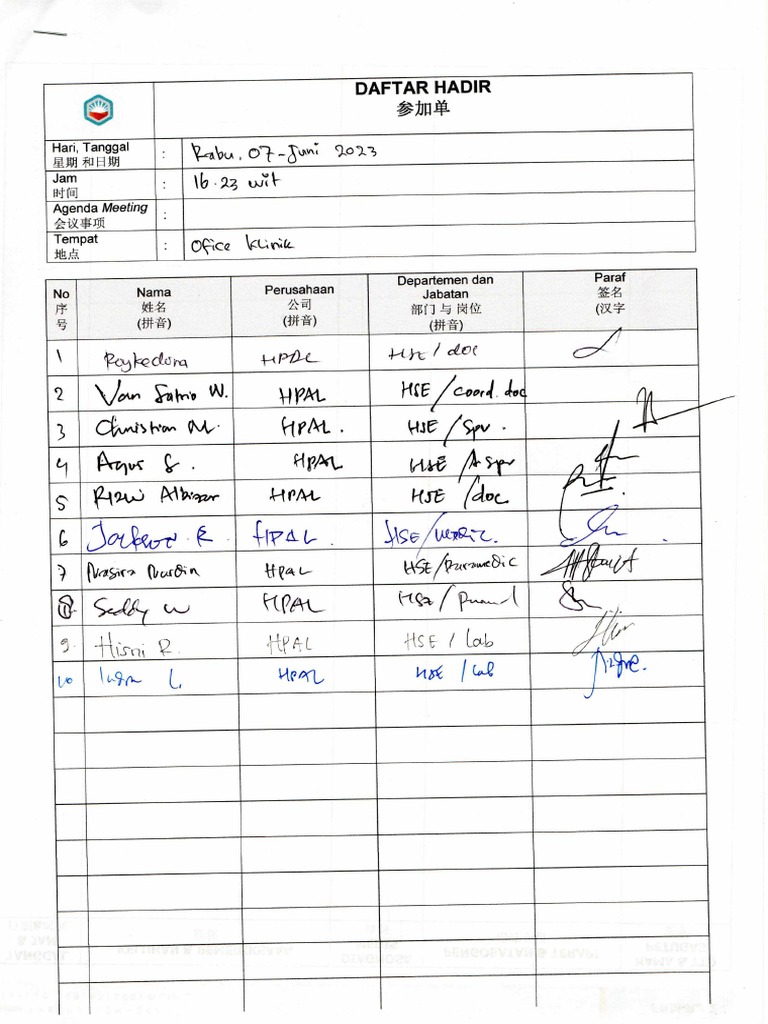 DAFTAR HADIR
参加单
Hari, Tanggal : Rabu, 07-Juni 2023
星期 和日期
Jam : 16.23 wit
时间
Agenda Meeting :
会议事项
Tempat : Ofice Klinik
地点
No Nama Perusahaan Departemen dan Jabatan Paraf
序号 姓名 公司 部门 与 岗位 签名
(拼音) (拼音) (拼音) (汉字
1 Roykedona HPAL HSE / doc
2 Van Satrio W. HPAL HSE / coord. doc
3 Christian M. HPAL. HSE / Spv.
4 Agus S. HPAL HSE / A spv
5 Rizw Albizar HPAL HSE / doc
6 HPAL. HSE/
7 Nasira Nurdin Hpal HSE/Paramedic
8 Seddy W HPAL HSE /
9. Hisni R. HPAL HSE / Lab
10 L. HPAL HSE / Lab